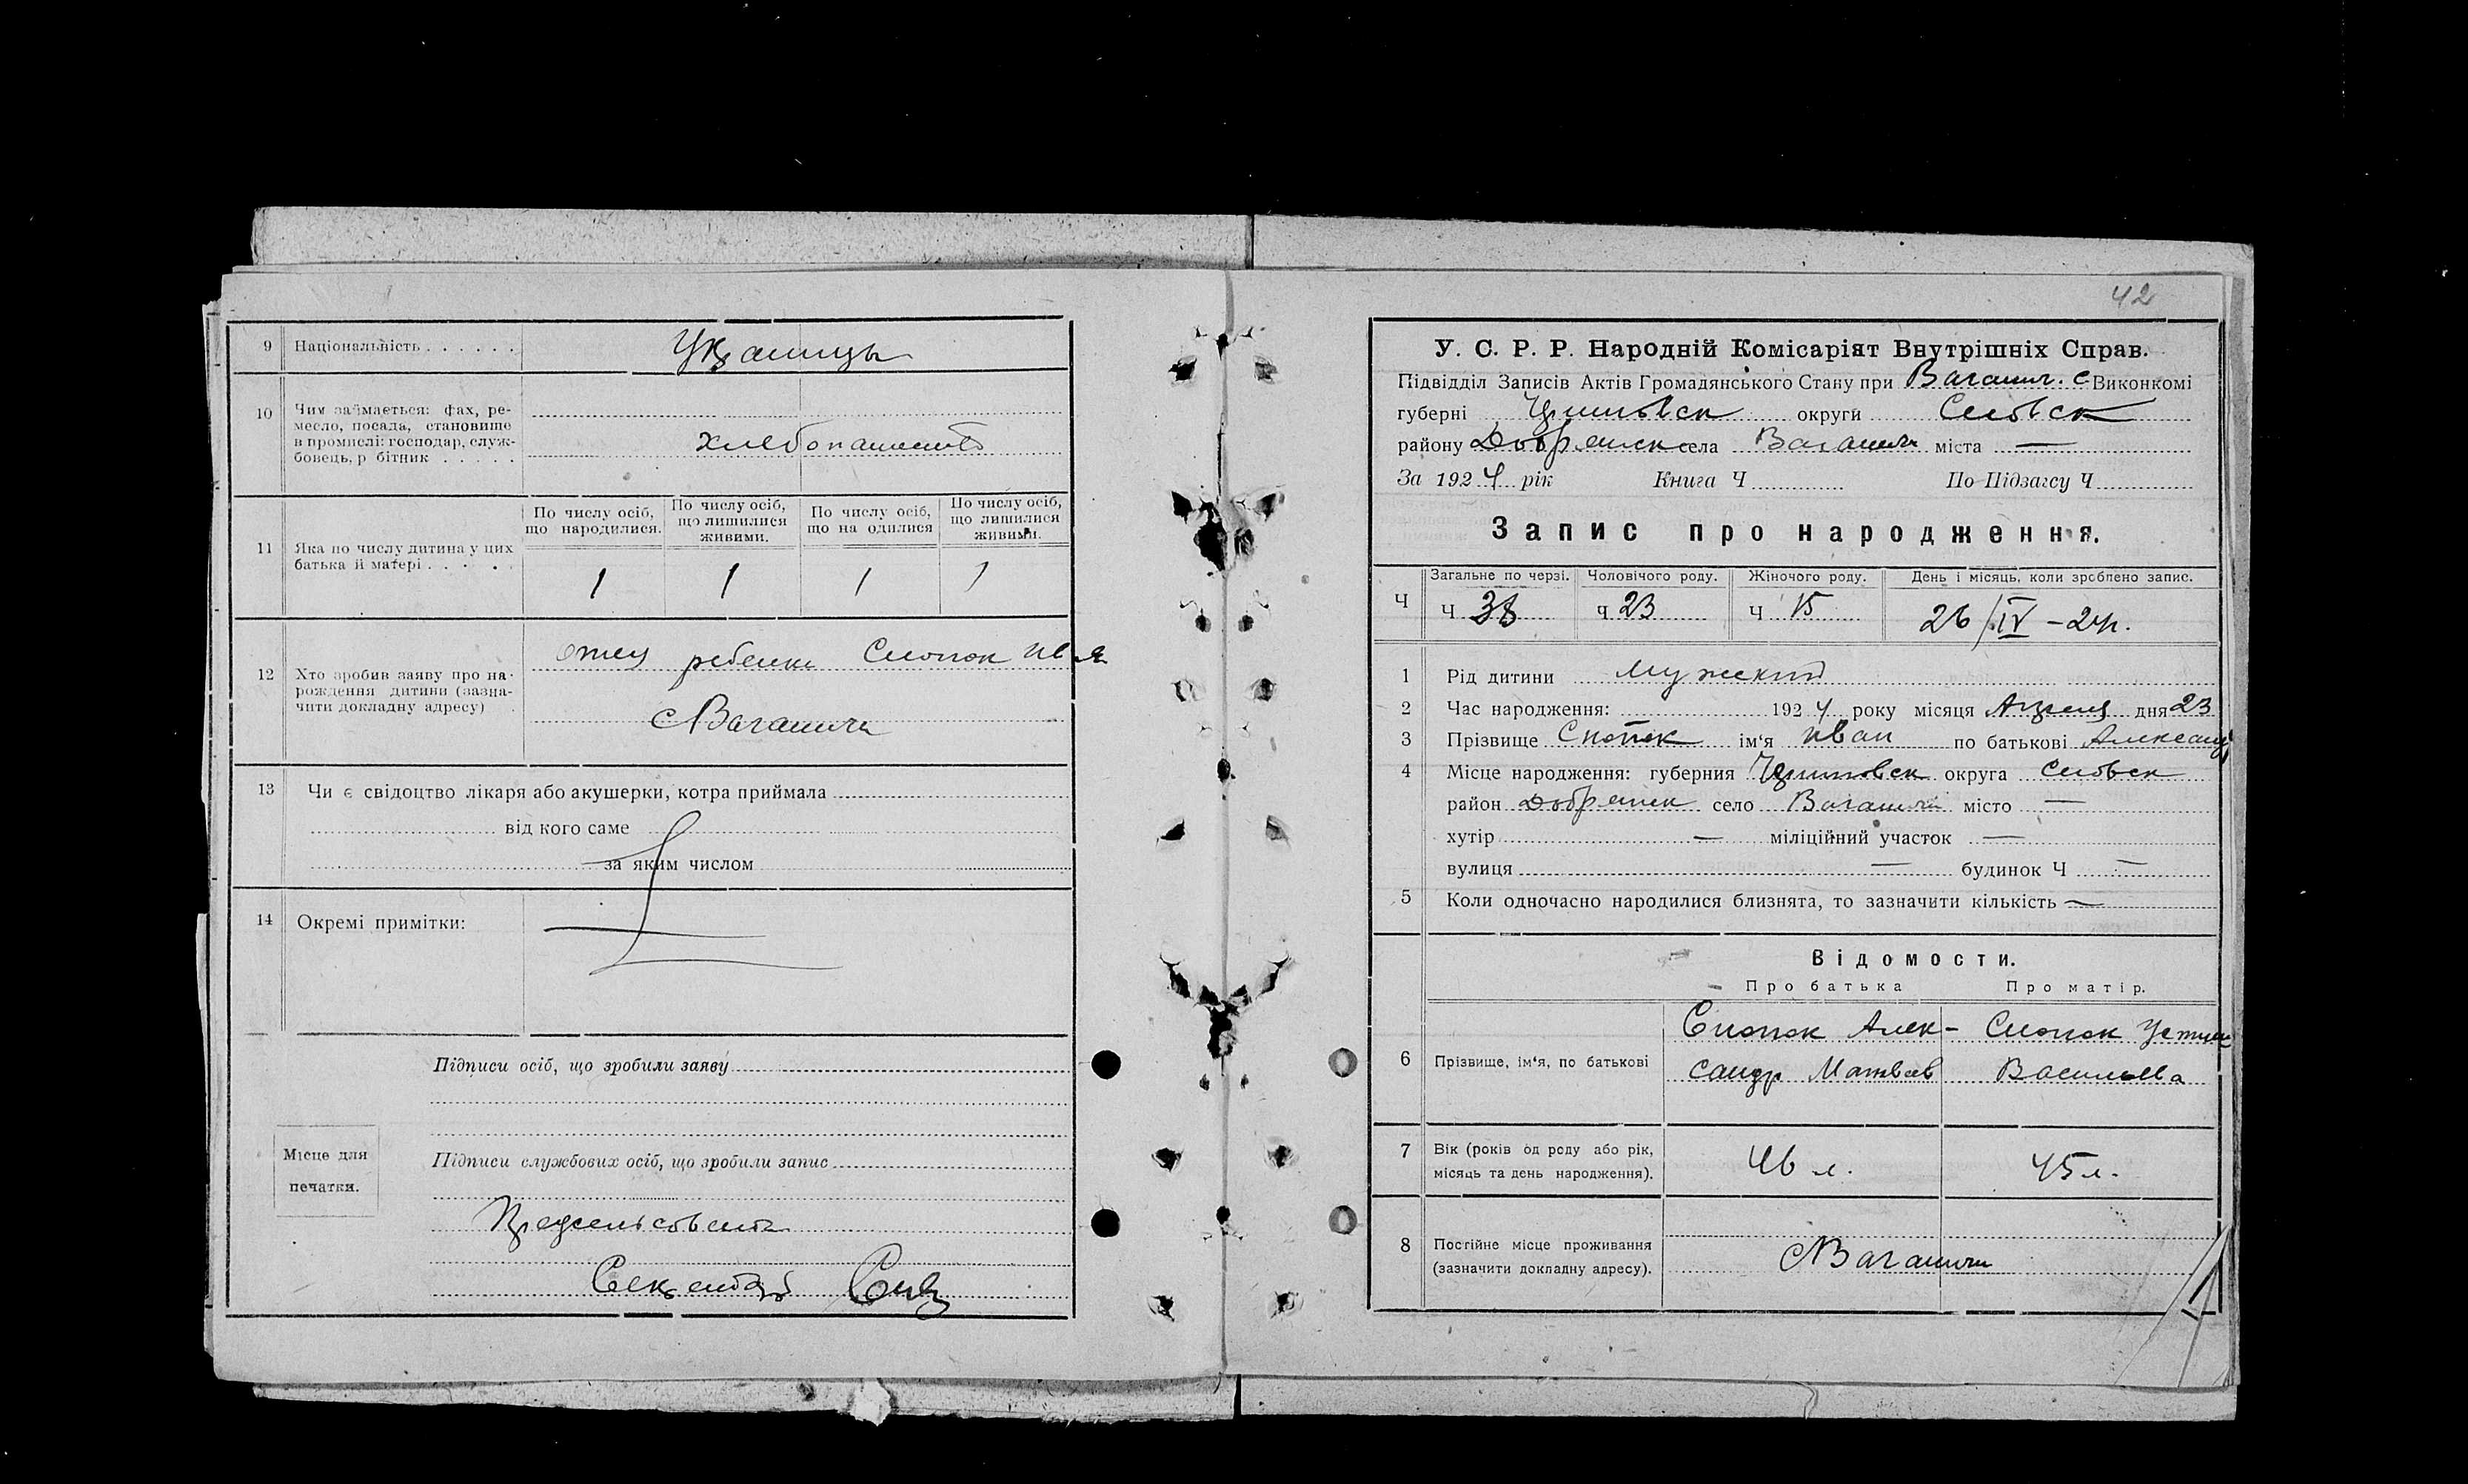 9 Національність . . . . . . Украинцы
10 Чим займається: фах, ре-
месло, посада, становище
в промислі: господар, служ-
бовець, р бітник . . . . . хлебопашество
11 Яка по числу дитина у цих
батька й матері . . . . .
По числу осіб,
що народилися.
По числу осіб,
що лишилися
живими.
По числу осіб,
що на одилися
По числу осіб,
що лишилися
живими.
1 1 1 1
12 Хто зробив заяву про на-
рождення дитини (зазна-
чити докладну адресу)
отец ребенка Снопок
с Ваганичи
13 Чи є свідоцтво лікаря або акушерки, котра приймала
від кого саме
за яким числом
14 Окремі примітки:
Підписи осіб, що зробили заяву
Місце для
печатки.
Підписи службових осіб, що зробили запис
Предсельсовета
Секретарь
42
У. С. Р. Р. Народній Комісаріят Внутрішніх Справ.
Підвідділ Записів Актів Громадянського Стану при Ваганич. С-Виконкомі
губерні Черниговск округи Сновск
району Добрянск села Ваганичи міста —
За 1924 рік Книга Ч По Підзагсу Ч
Запис про народження.
Ч
Загальне по черзі. Чоловічого роду. Жіночого роду. День і місяць, коли зроблено запис.
Ч 38 Ч 23 Ч 15 26/IV-24г.
1 Рід дитини мужской
2 Час народження: 1924 року місяця Апреля дня 23
3 Прізвище Снопок ім'я Иван по батькові Александр
4 Місце народження: губерния Черниговск округа Сновск
район Добрянск село Ваганичи місто —
хутір — міліційний участок —
вулиця — будинок Ч —
5 Коли одночасно народилися близнята, то зазначити кількість —
Відомости.
Про батька Про матір.
6 Прізвище, ім'я, по батькові
Снопок Алек- Снопок
сандр Матвеев Васильева
7 Вік (років од роду або рік,
місяць та день народження).
46 л. 45 л.
8 Постійне місце проживання
(зазначити докладну адресу).
с Ваганичи